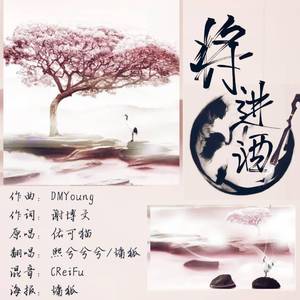 将进酒
作曲：DMYoung
作词：谢博文
原唱：佑可猫
翻唱：熙兮兮兮/墙狐
混音：CReiFu
海报：墙狐